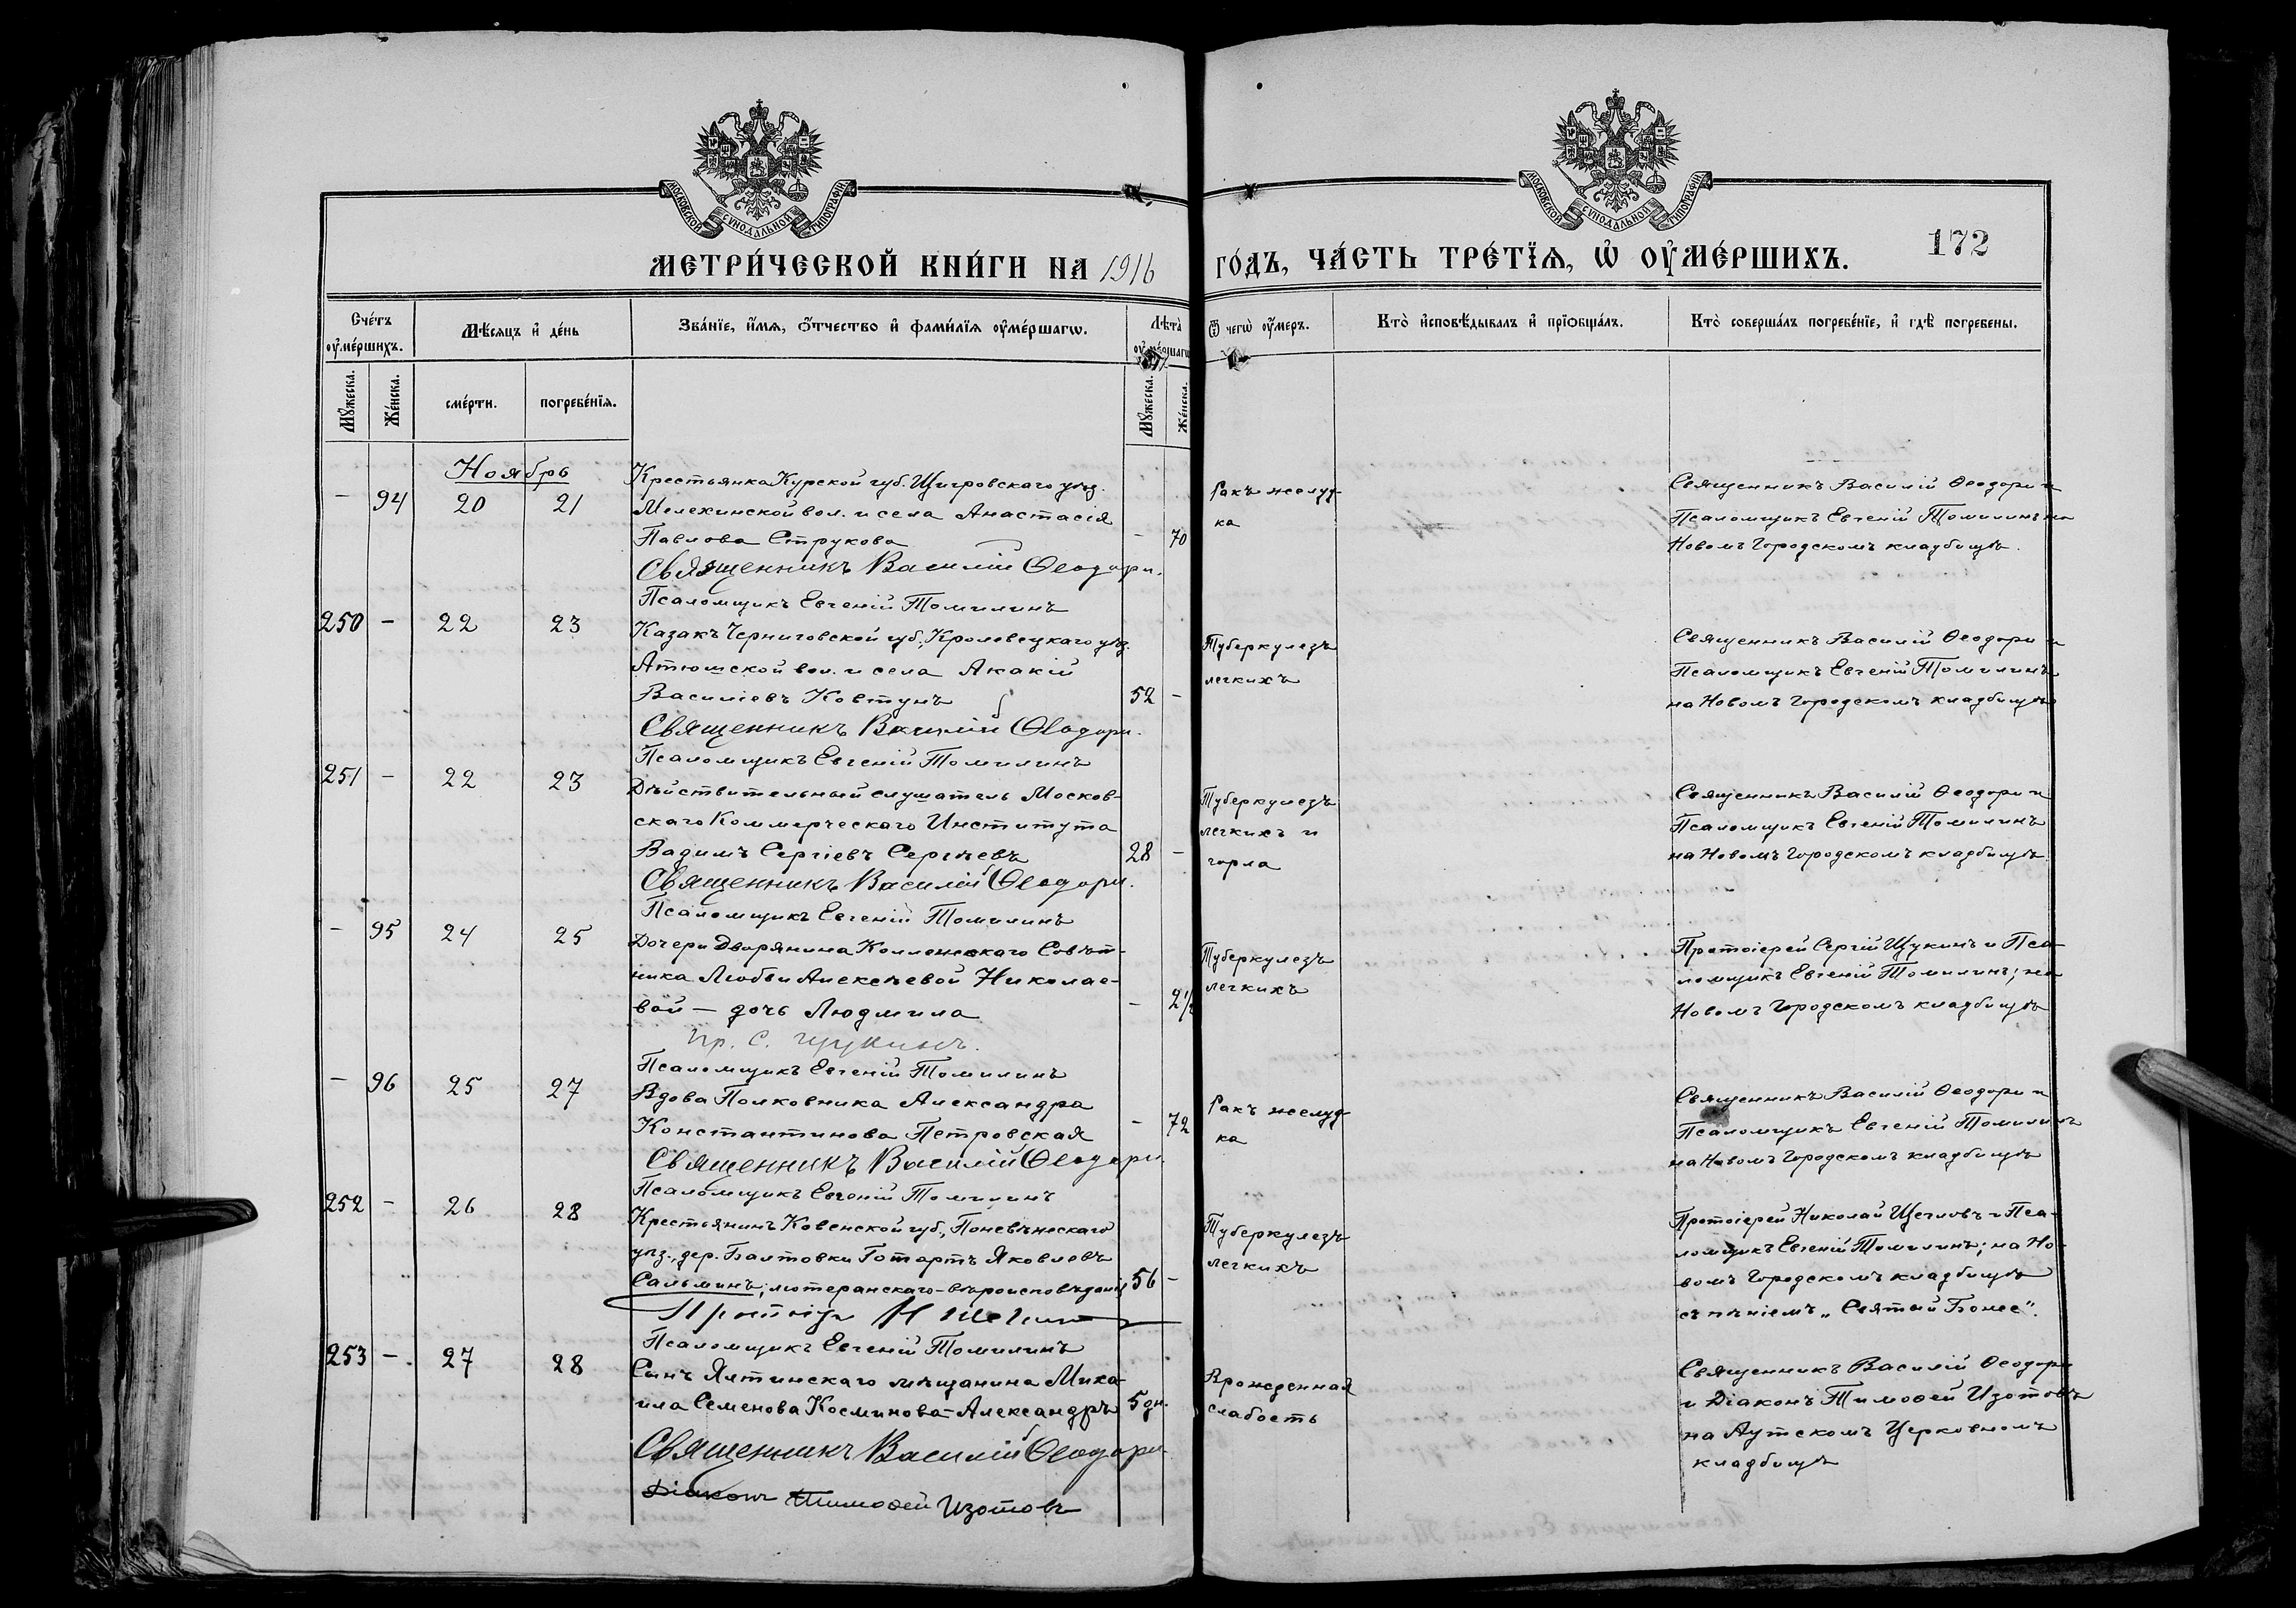 МОСКОВСКОЙ СѴНОДАЛЬНОЙ ТИПОГРАФІИ
МОСКОВСКОЙ СѴНОДАЛЬНОЙ ТИПОГРАФІИ
МЕТРИ́ЧЕСКОЙ КНИ́ГИ НА 1916
ГО́ДЪ, ЧА́СТЬ ТРЕ́ТЇѦ, Ѡ҆ ОУ҆МЕ́РШИХЪ.
172
Сче́тъ ᲂу҆ме́ршихъ.
Мѣ́сяцъ и҆ де́нь
Зва́нїе, и҆́мѧ, ѻ҆́тчество и҆ фами́лїѧ ᲂу҆ме́ршагѡ.
Лѣ́та ᲂу҆ме́ршагѡ
Ѿ чегѡ̀ ᲂу҆́меръ.
Кто̀ и҆сповѣ́дывалъ и҆ прїѡбща́лъ.
Кто̀ соверша́лъ погребе́нїе, и҆ гдѣ̀ погребены.
Мꙋ́жеска.
Же́нска.
сме́рти.
погребе́нїѧ.
Мꙋ́жеска.
Же́нска.
Ноябрь
Крестьянка Курской губ. Щигровскаго уѣз.
– 94 20 21
Мелехинской вол. и села Анастасія
Павлова Струкова – 70
Священникъ Василій Ѳеодори.
Псаломщикъ Евгеній Томилинъ
Ракъ желуд-
ка
Священникъ Василій Ѳеодори и
Псаломщикъ Евгеній Томилинъ на
Новомъ Городскомъ кладбищѣ.
250 – 22 23
Казакъ Черниговской губ., Кролевецкаго уѣз.
Атюшской вол. и села Акакій
Василіевъ Ковтунъ 52 –
Священникъ Василій Ѳеодори.
Псаломщикъ Евгеній Томилинъ
Туберкулезъ
легкихъ
Священникъ Василій Ѳеодори и
Псаломщикъ Евгеній Томилинъ
на Новомъ Городскомъ кладбищѣ
251 – 22 23
Дѣйствительный слушатель Москов-
скаго Коммерческаго Института
Вадимъ Сергіевъ Сергѣевъ 28 –
Священникъ Василій Ѳеодори.
Псаломщикъ Евгеній Томилинъ
Туберкулезъ
легкихъ и
горла
Священникъ Василій Ѳеодори и
Псаломщикъ Евгеній Томилинъ
на Новомъ Городскомъ кладбищѣ.
– 95 24 25
Дочери Дворянина Коллежскаго Совѣт-
ника Любви Алексѣевой Николае-
вой – дочь Людмила –
Пр. С. Щукинъ.
Псаломщикъ Евгеній Томилинъ
Туберкулезъ
легкихъ
Протоіерей Сергій Щукинъ и Пса-
ломщикъ Евгеній Томилинъ; на
Новомъ Городскомъ кладбищѣ
– 96 25 27
Вдова Полковника Александра
Константинова Петровская – 72
Священникъ Василій Ѳеодори.
Псаломщикъ Евгеній Томилинъ
Ракъ желуд-
ка
Священникъ Василій Ѳеодори и
Псаломщикъ Евгеній Томилинъ
на Новомъ Городскомъ кладбищѣ
252 – 26 28
Крестьянинъ Ковенской губ., Поневѣжскаго
уѣз., дер. Балтовки Готартъ Яковлевъ
Сальминъ; лютеранскаго-вѣроисповѣданія 56 –
Псаломщикъ Евгеній Томилинъ
Туберкулезъ
легкихъ
Протоіерей Николай Щегловъ и Пса-
ломщикъ Евгеній Томилинъ; на Но-
вомъ Городскомъ кладбищѣ
съ пѣніемъ „Святый Боже".
253 – 27 28
Сынъ Ялтинскаго мѣщанина Миха-
ила Семенова Косминова-Александръ 5 дн.
Священникъ Василій Ѳеодори
Діаконъ Тимоѳей Изотовъ
Врожденная
слабость
Священникъ Василій Ѳеодори
и Діаконъ Тимоѳей Изотовъ
на Аутскомъ Церковномъ
кладбищѣ